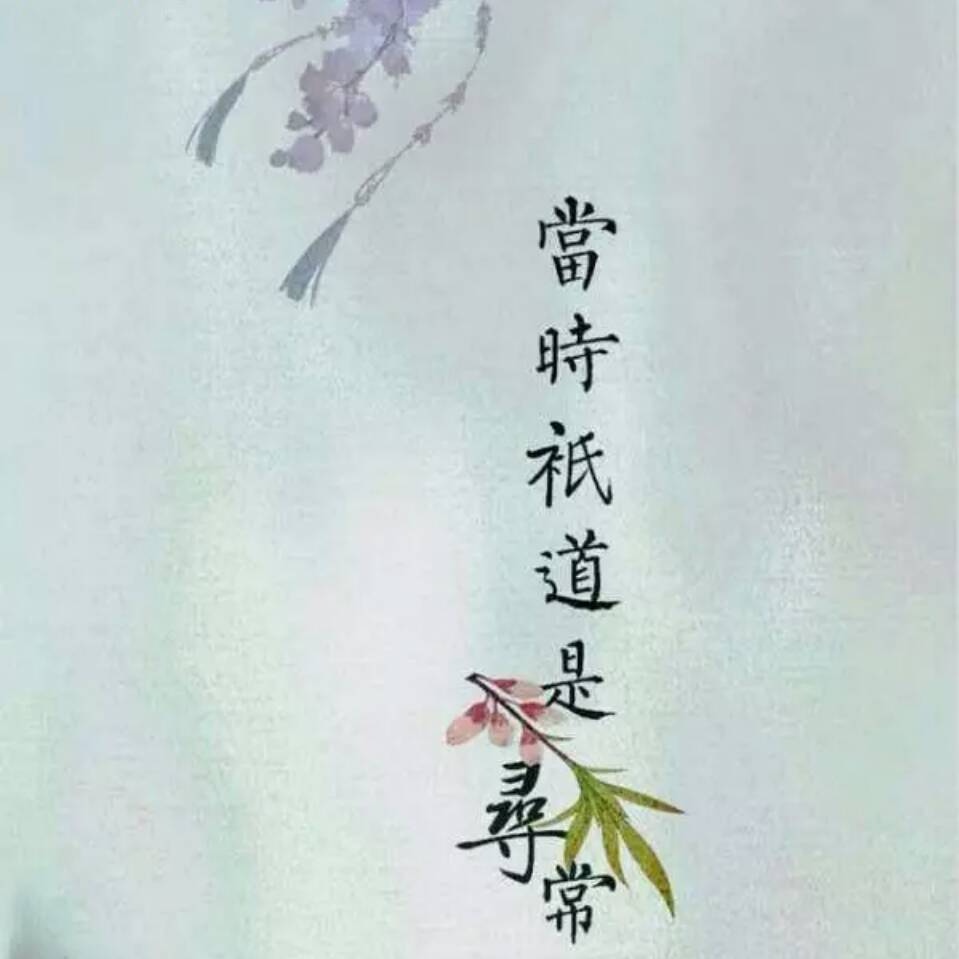 當時祇道是尋常